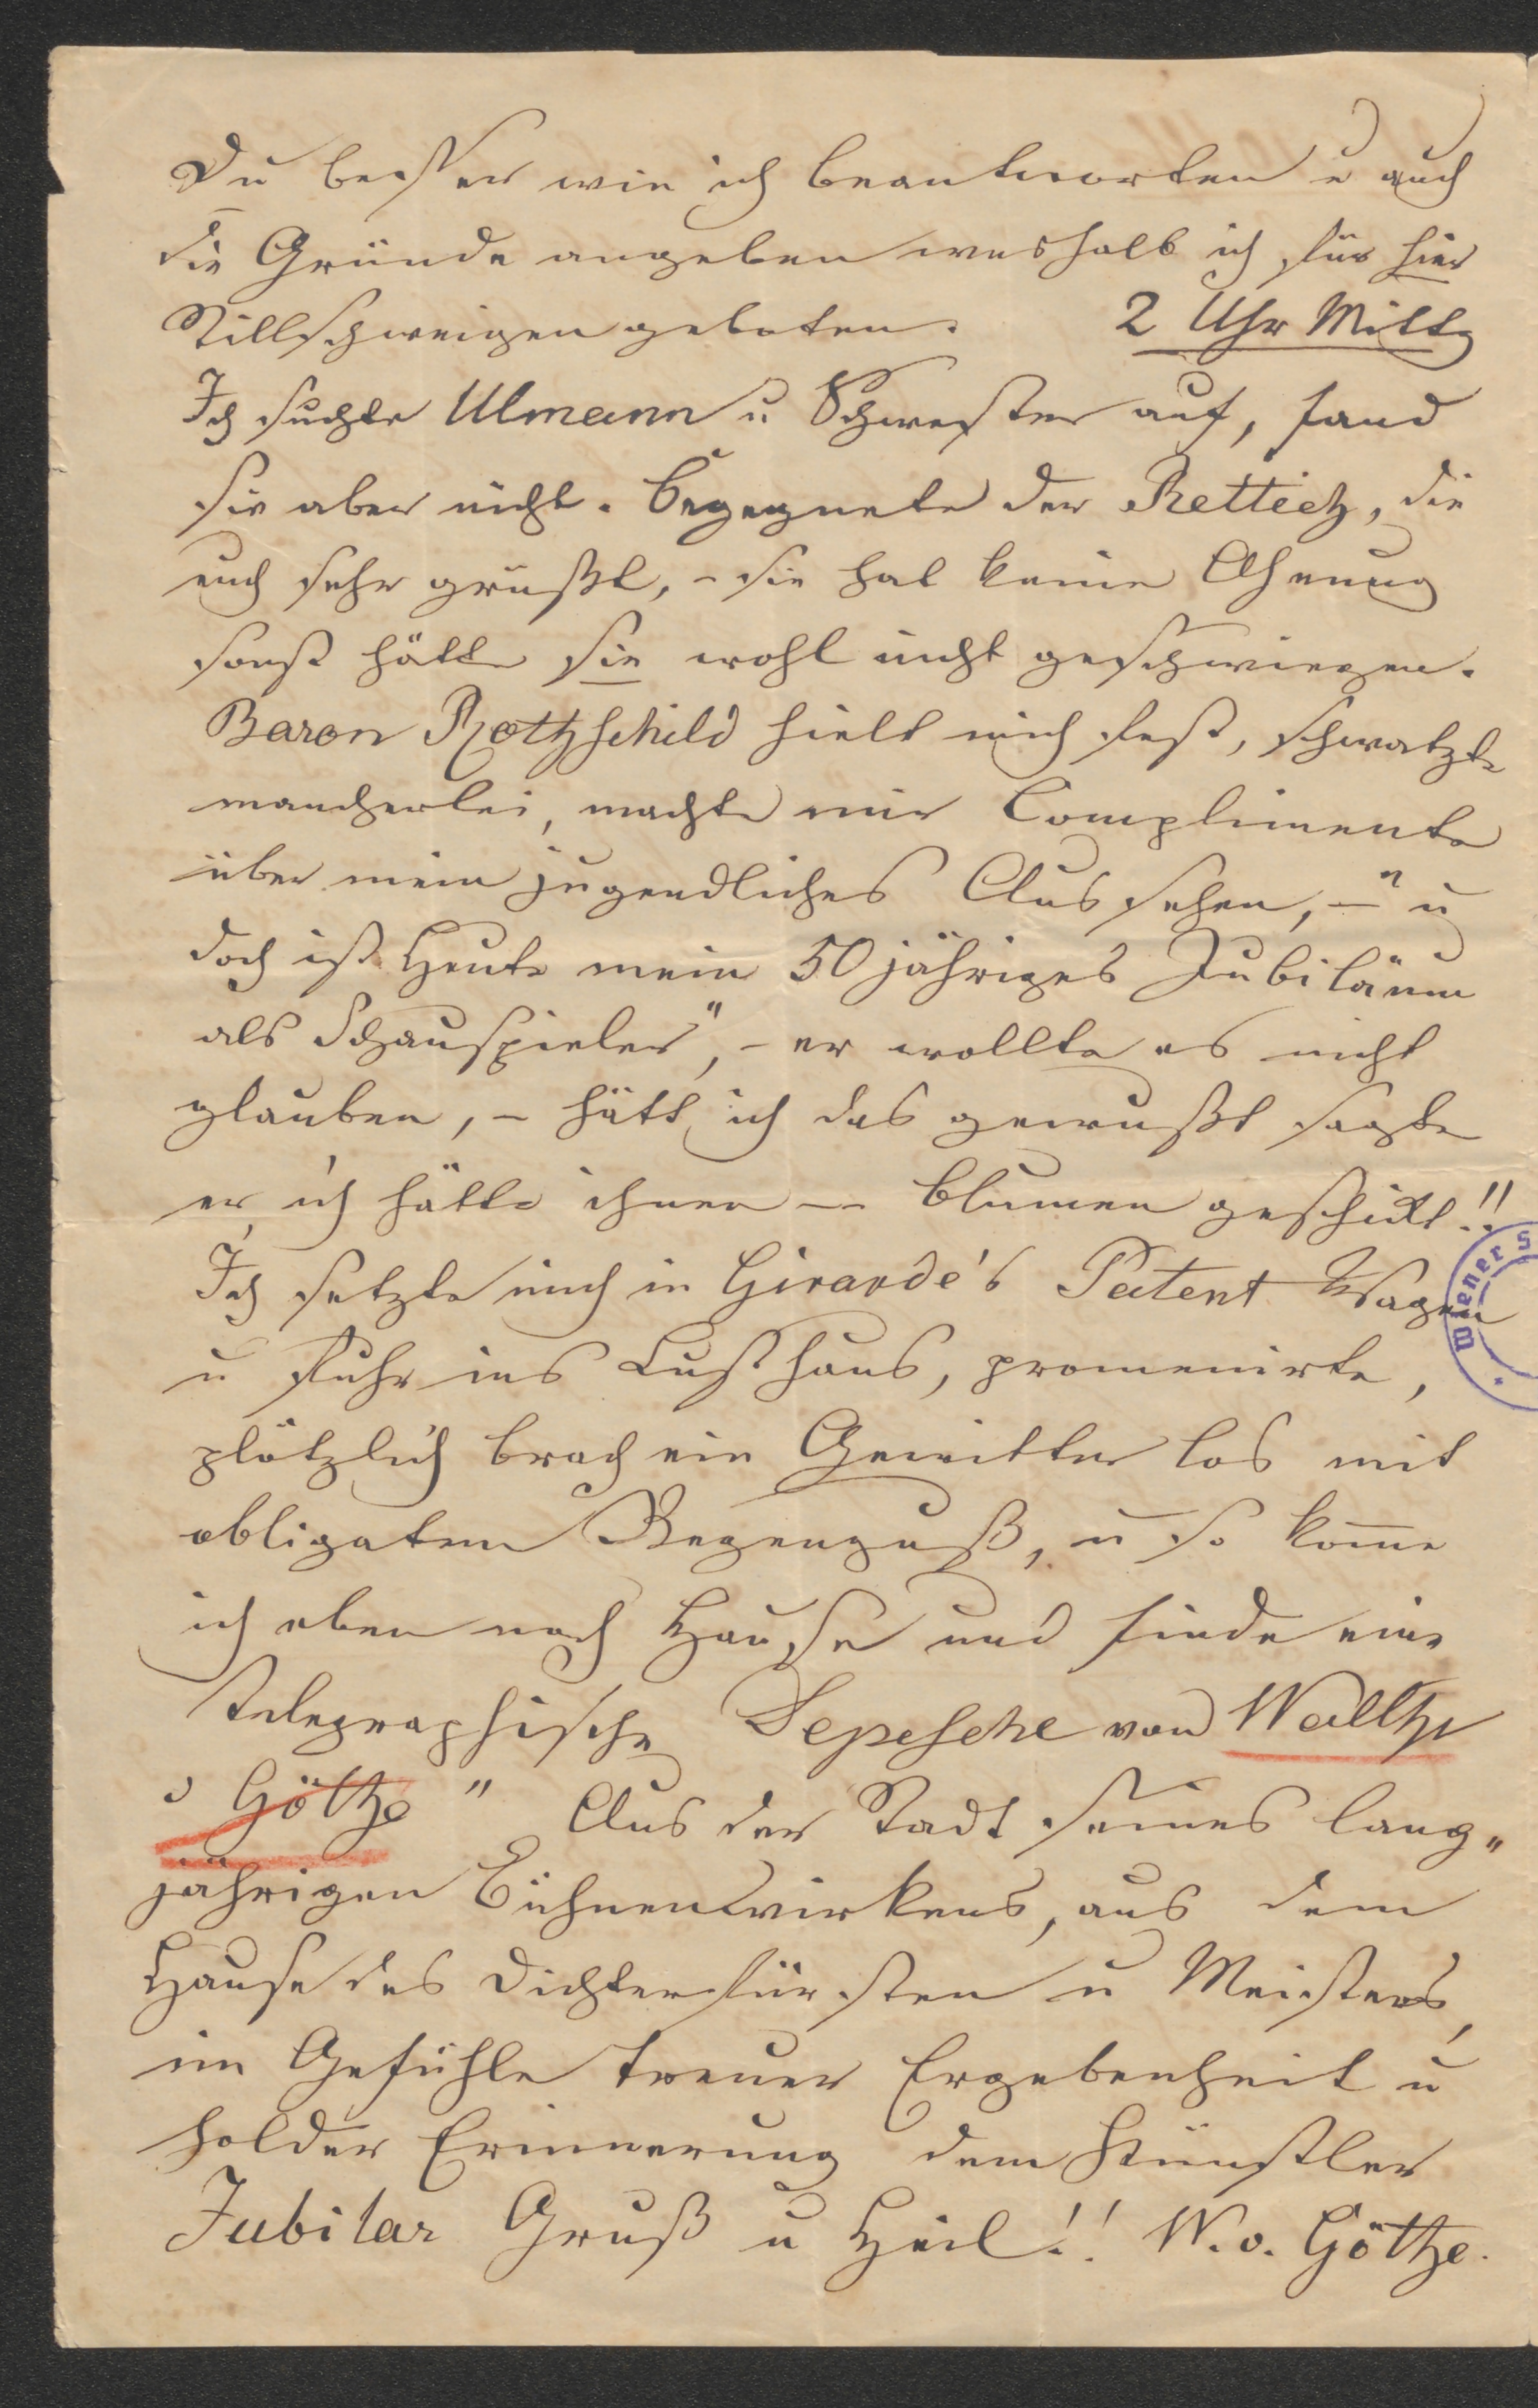 Du besser wie ich beantworten u auch
die Gründe angeben weshalb ich für hier
Stillschweigen geboten.
2 Uhr Mittg
Ich suchte Ulmann u Schwester auf, fand
sie aber nicht. Begegnete der Rettich, die
euch sehr grüßt, - sie hat keine Ahnung
sonst hätte sie wohl nicht geschwiegen.
Baron Rothschild hielt mich fest, schwatzte
mancherlei, machte mir Complimente
über mein jugendliches Aussehen, - " u
doch ist Heute mein 50 jähriges Jubiläum
als Schauspieler", - er wollte es nicht
glauben, - hätt ich das gewußt sagte
er, ich hätte ihnen -- Blumen geschickt!!
Ich setzte mich in Girarde's Patent Wagen
u fuhr ins Lusthaus, promenirte,
plötzlich brach ein Gewitter los mit
obligatem Regenguß, u so kome
ich eben nach Hause und finde eine
telegraphische Depesche von Walthr
v Göthe " Aus der Stadt seines lang"
jährigen Bühnenwirkens, aus dem
Hause des Dichterfürsten u Meisters,
im Gefühle treuer Ergebenheit u
holder Erinnerung dem Künstler
Jubilar Gruß u Heil!! W. v. Göthe.
Wiener S